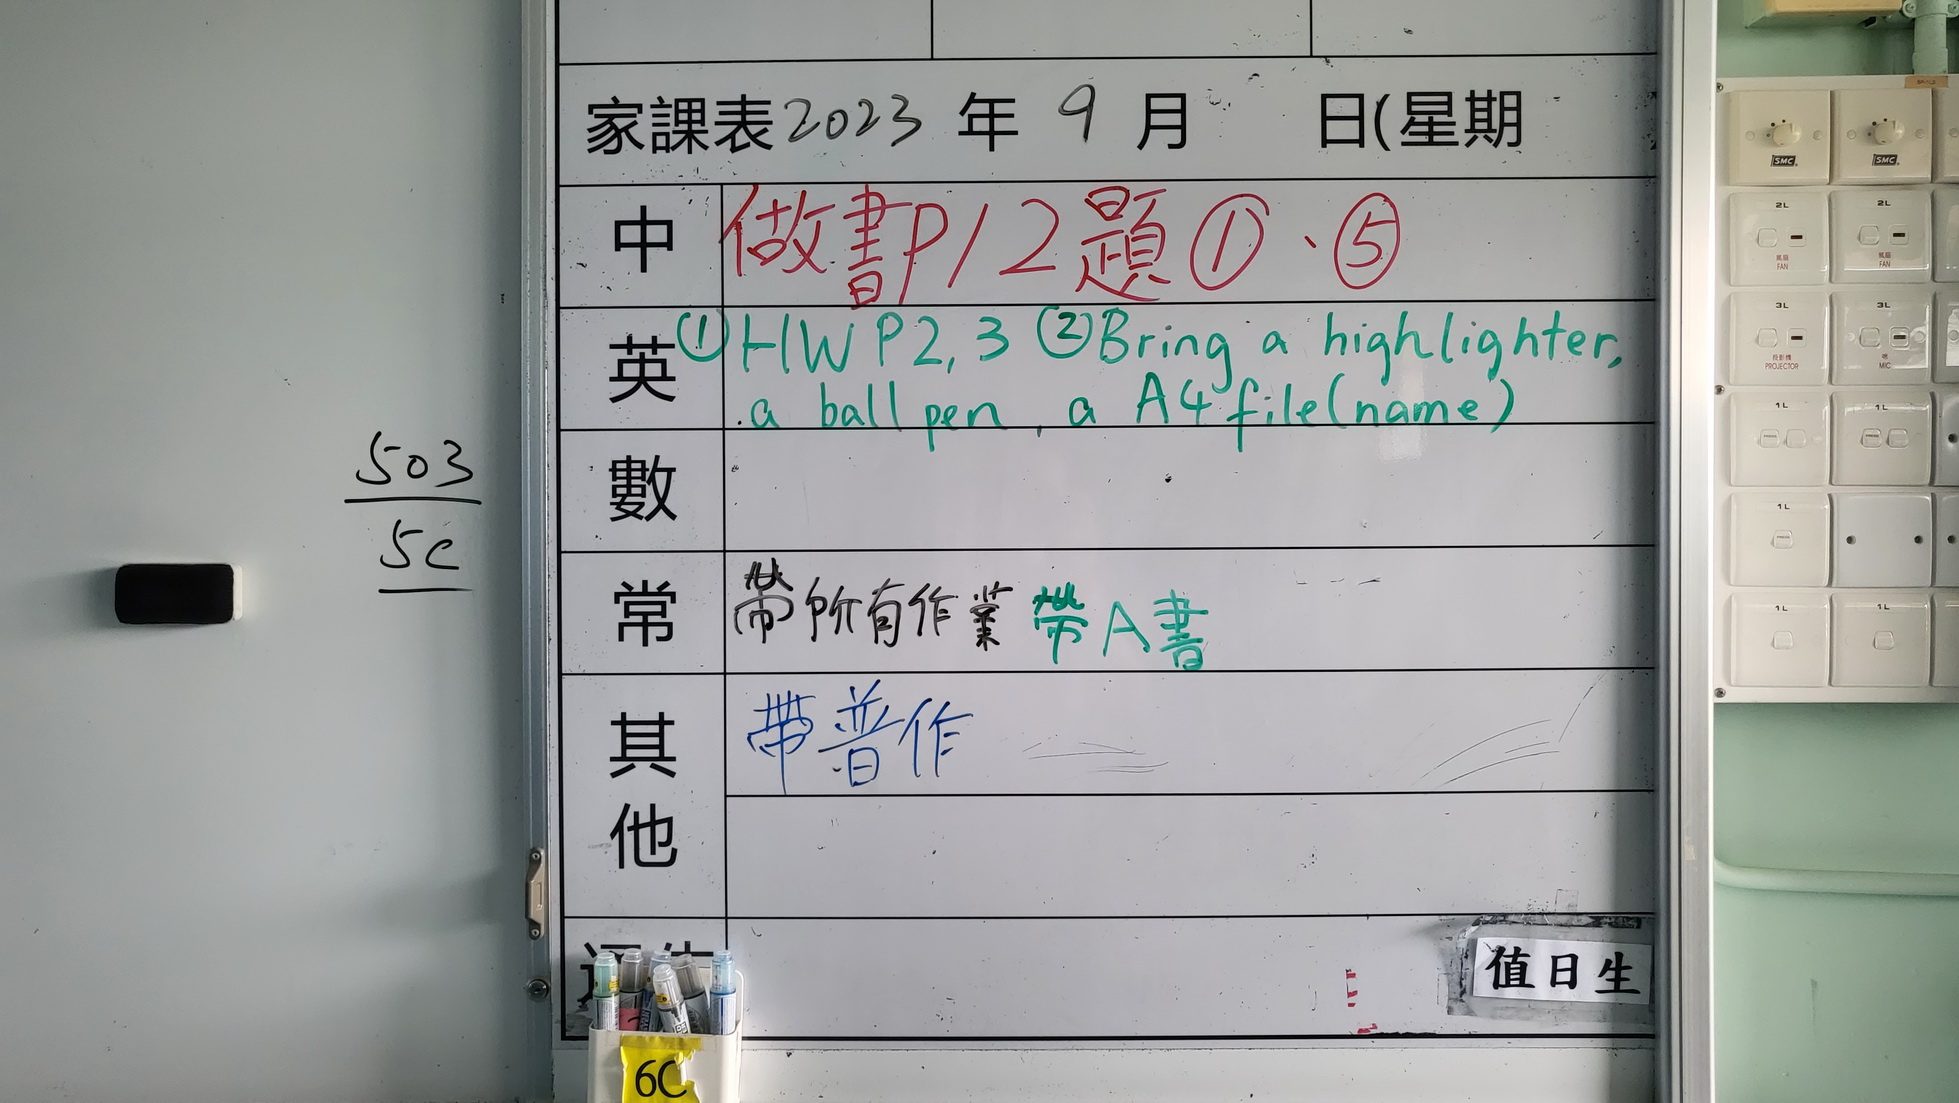 家課表2023 年 9 月 日(星期
中 做書P12題①、⑤
英 ①HW P2,3 ②Bring a highlighter,
a ball pen, a A4 file(name)
數
常 帶所有作業 帶A書
其他 帶普作
值日生
503
5C
6C
SMC SMC
2L 2L
風扇 FAN 風扇 FAN
3L 3L
投影機 PROJECTOR 咪 MIC
1L 1L
1L
1L 1L